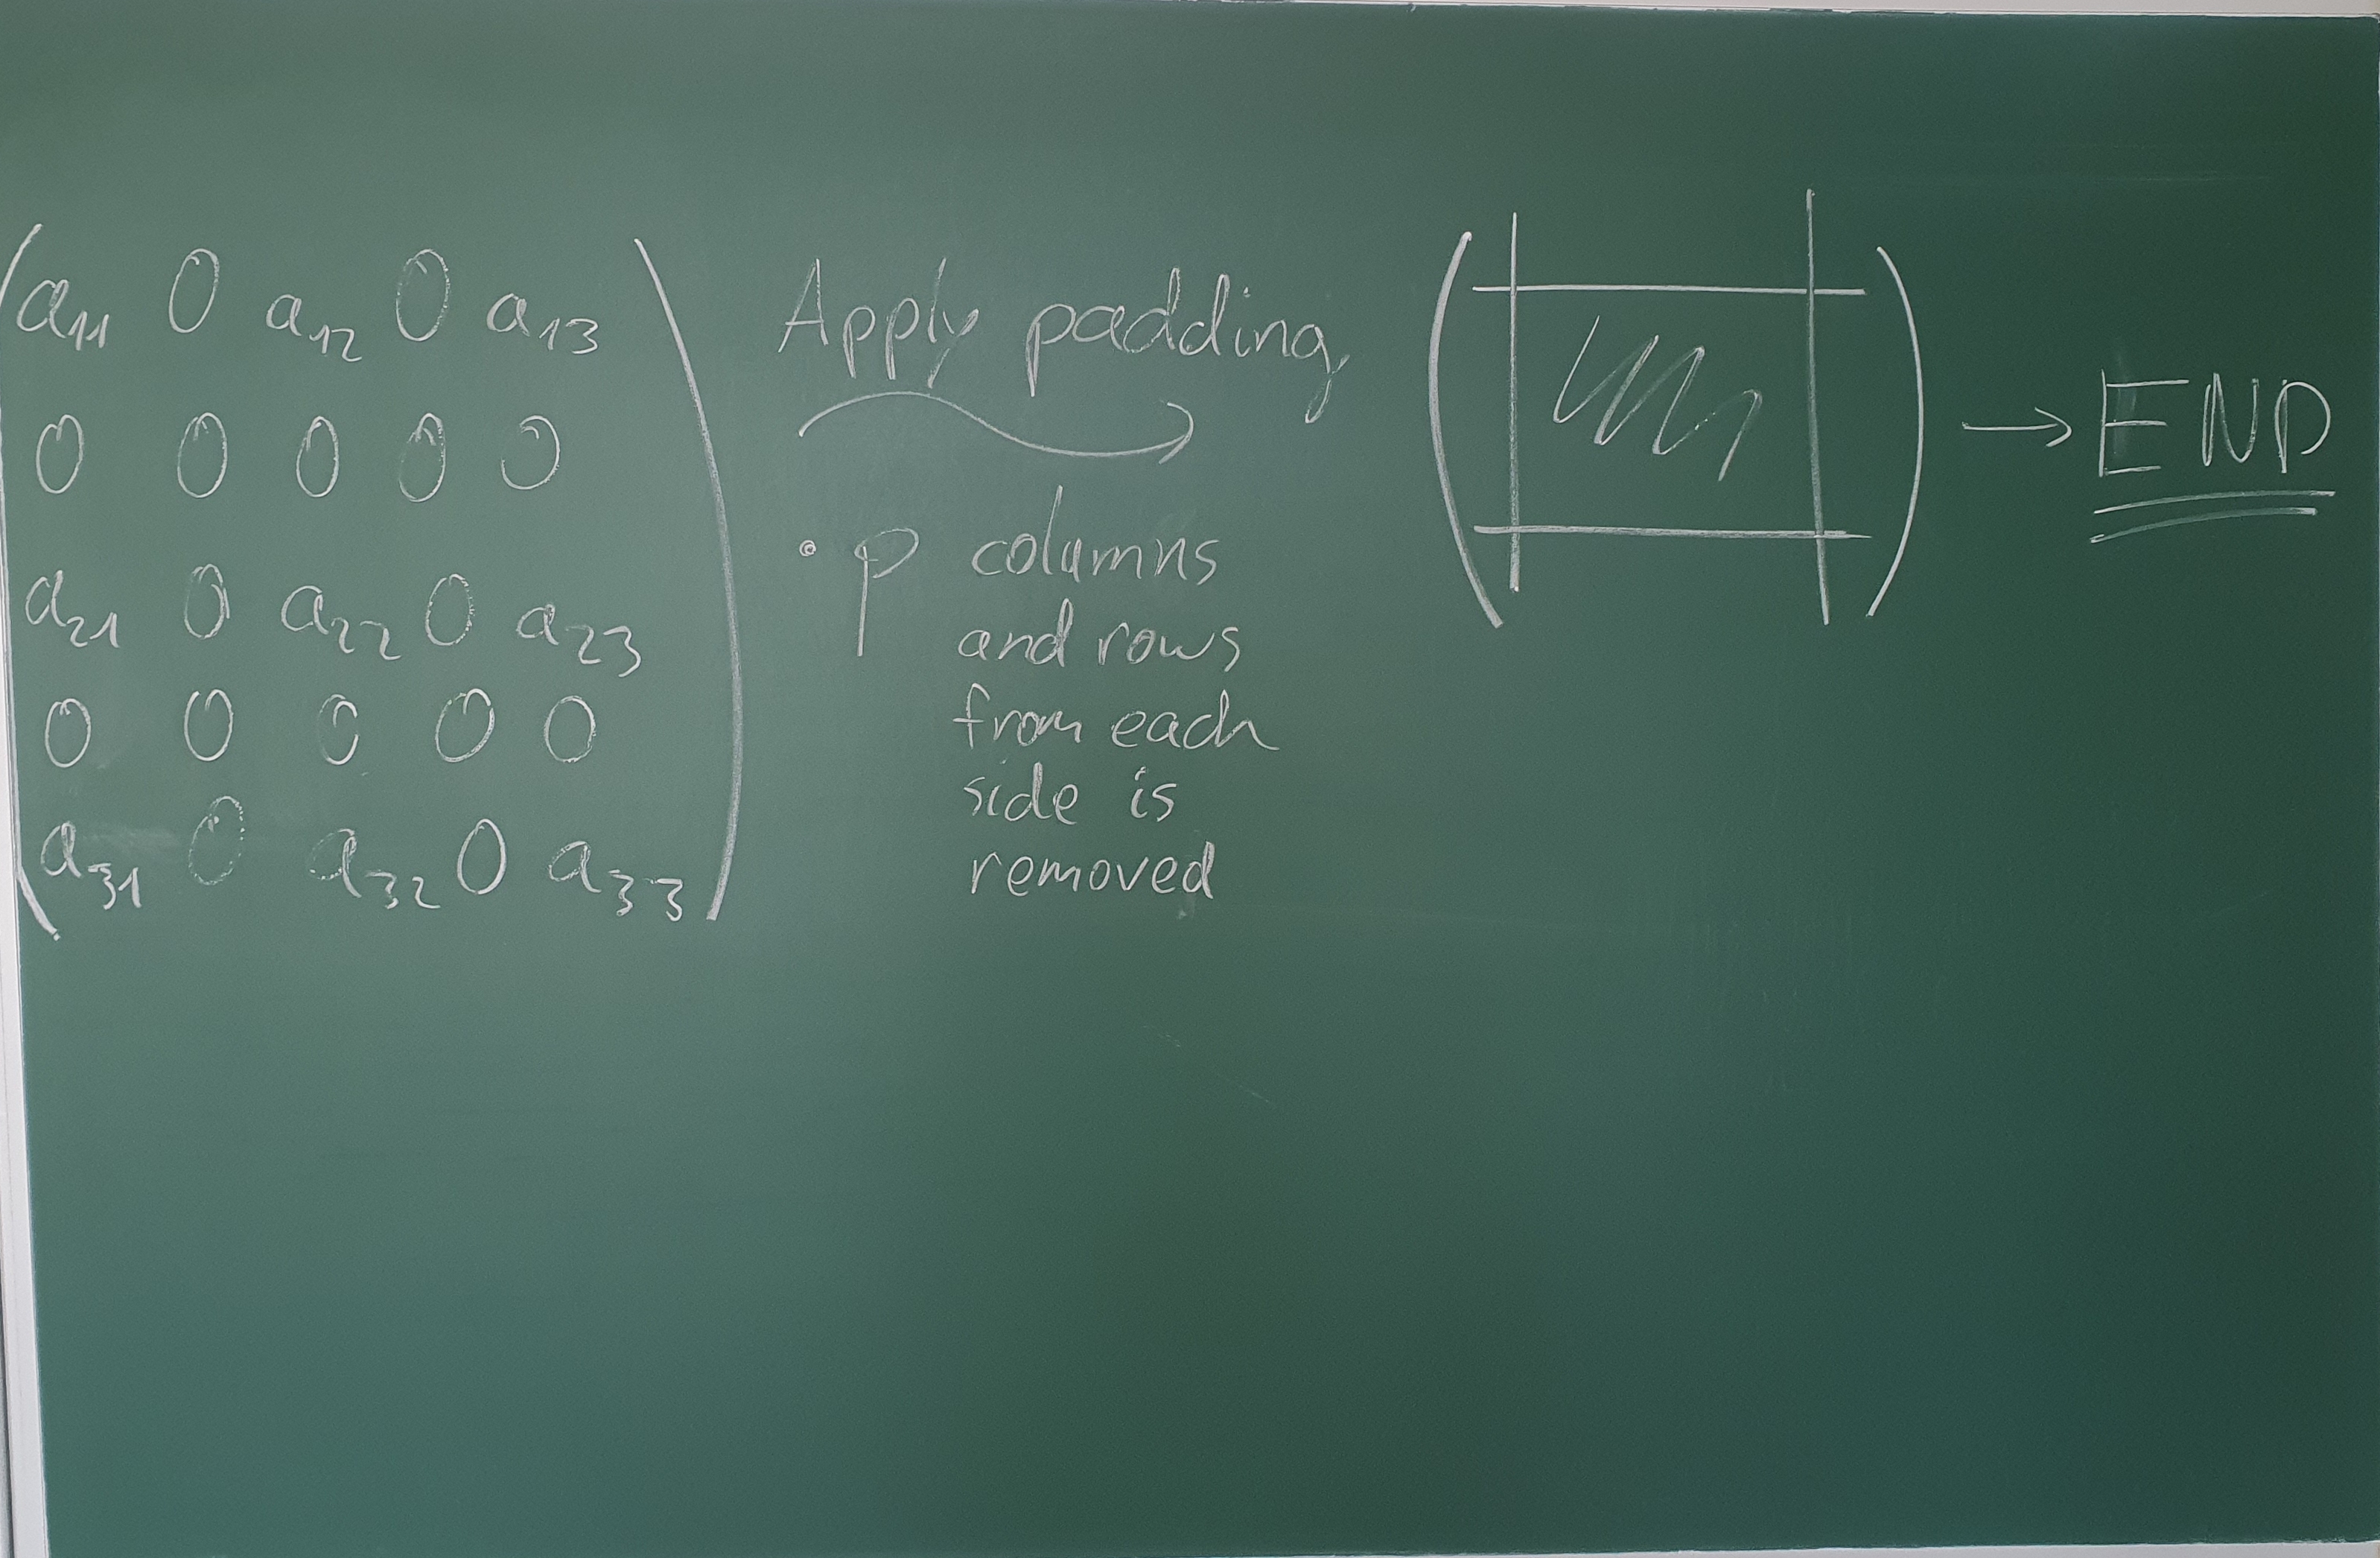 a11 0 a12 0 a13
0 0 0 0 0
a21 0 a22 0 a23
0 0 0 0 0
a31 0 a32 0 a33
Apply padding
• p columns
and rows
from each
side is
removed
→ END